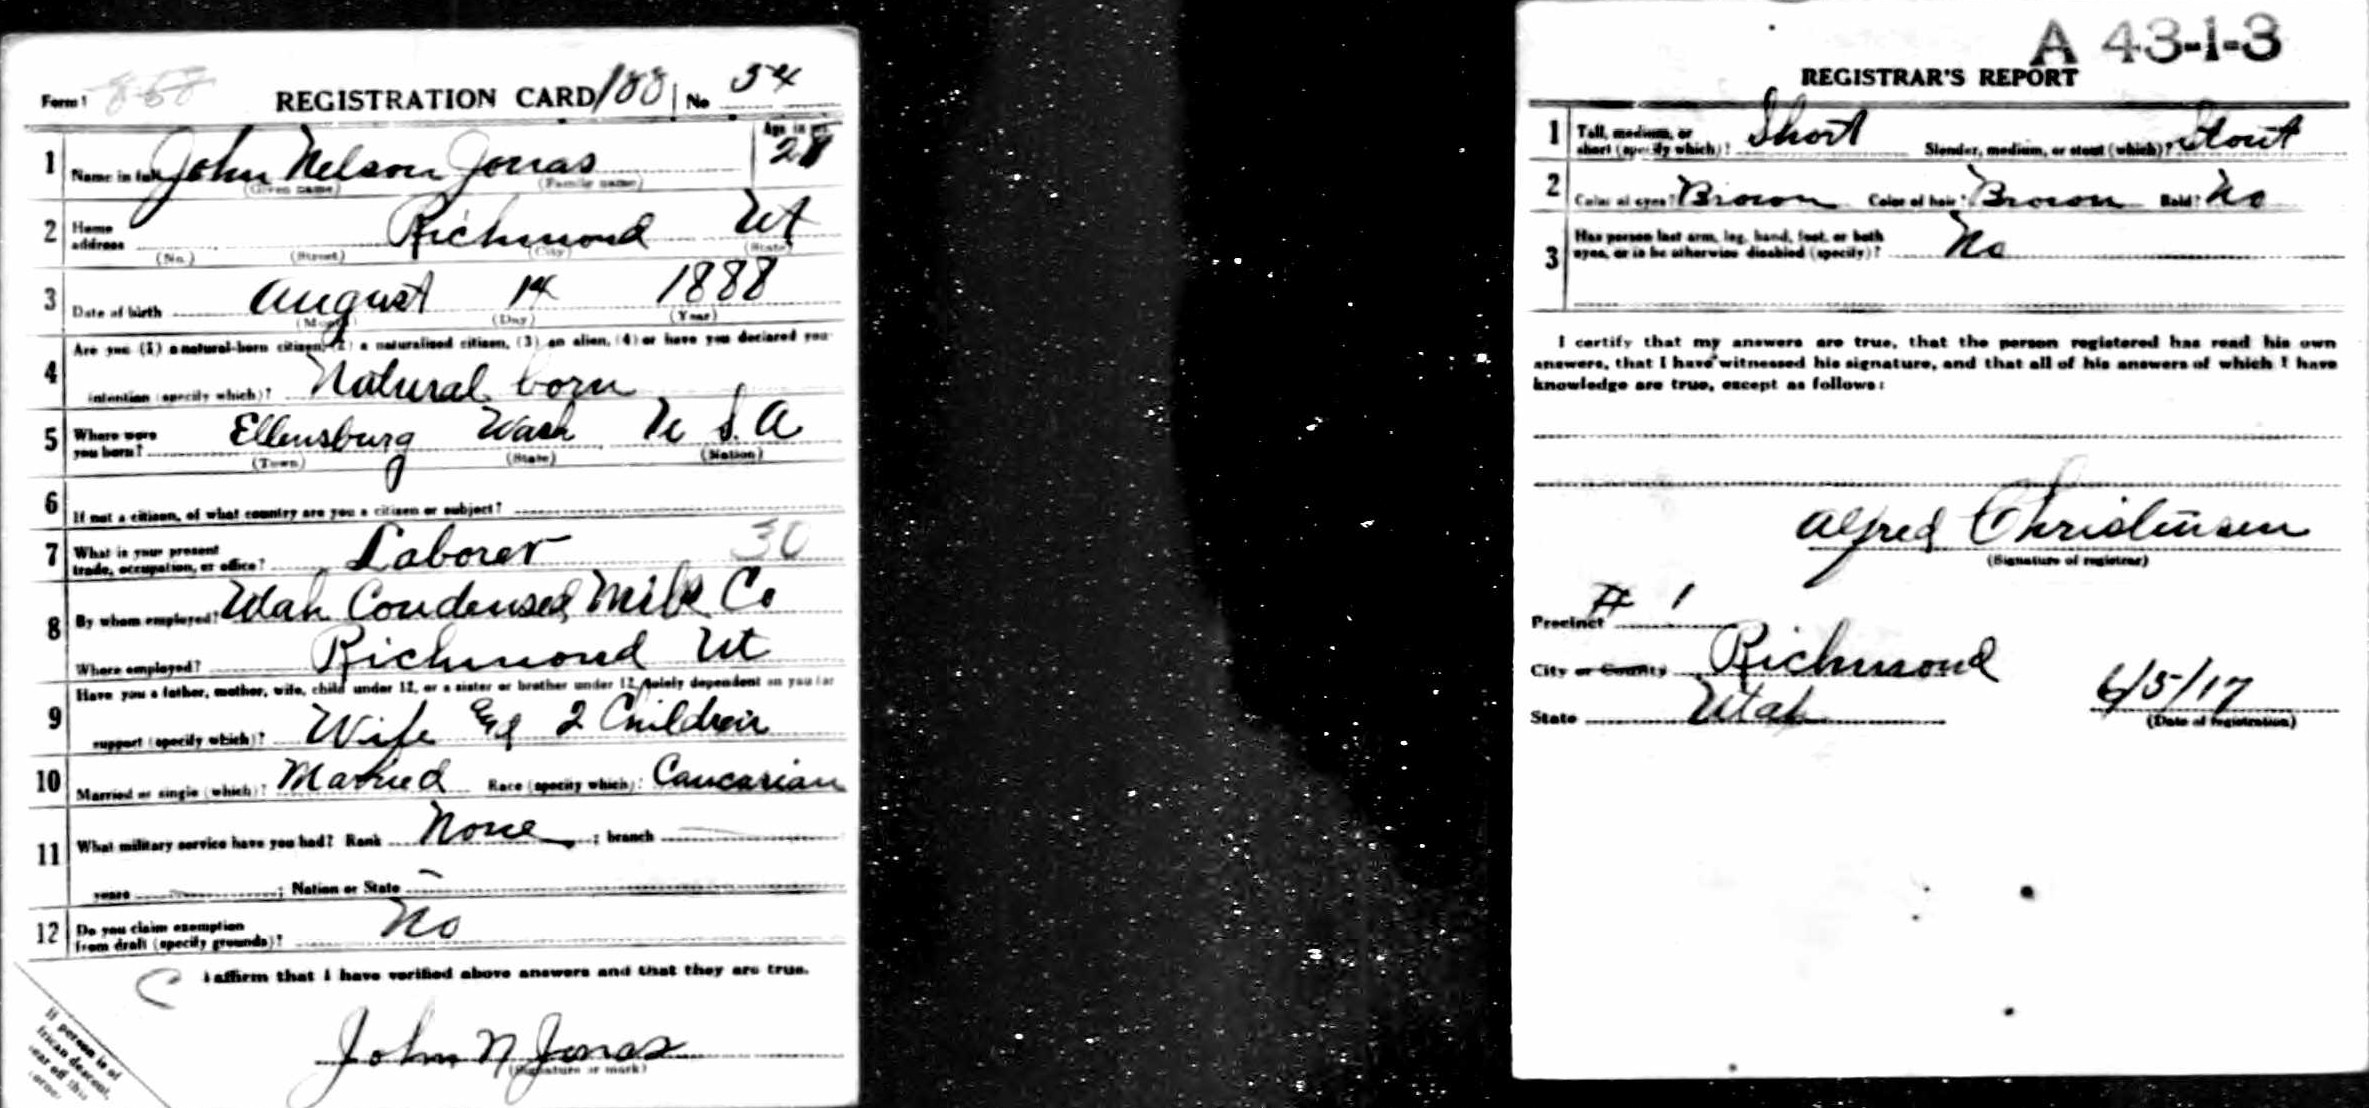 Form 1 858 REGISTRATION CARD 188 No 54
1 Name in full John Nelson Jonas Age in yrs. 28
(Given name) (Family name)
2 Home address Richmond Ut
(No.) (Street) (City) (State)
3 Date of birth August 14 1888
(Month) (Day) (Year)
4 Are you (1) a natural-born citizen, (2) a naturalized citizen, (3) an alien, (4) or have you declared your
intention (specify which)? Natural born
5 Where were you born? Ellensburg Wash U S. A
(Town) (State) (Nation)
6 If not a citizen, of what country are you a citizen or subject?
7 What is your present trade, occupation, or office? Laborer 30
8 By whom employed? Utah Condensed Milk Co
Where employed? Richmond Ut
9 Have you a father, mother, wife, child under 12, or a sister or brother under 12, solely dependent on you for
support (specify which)? Wife and 2 Children
10 Married or single (which)? Married Race (specify which)? Caucasian
11 What military service have you had? Rank None ; branch
years ; Nation or State –
12 Do you claim exemption from draft (specify grounds)? No
I affirm that I have verified above answers and that they are true.
C
John N Jonas
(Signature or mark)
If person is of
African descent,
tear off this
corner.
A 43-1-3
REGISTRAR'S REPORT
1 Tall, medium, or short (specify which)? Short Slender, medium, or stout (which)? Stout
2 Color of eyes? Brown Color of hair? Brown Bald? No
3 Has person lost arm, leg, hand, foot, or both
eyes, or is he otherwise disabled (specify)? No
I certify that my answers are true, that the person registered has read his own
answers, that I have witnessed his signature, and that all of his answers of which I have
knowledge are true, except as follows:
Alfred Christensen
(Signature of registrar)
Precinct # 1
City or County Richmond
State Utah 6/5/17
(Date of registration)